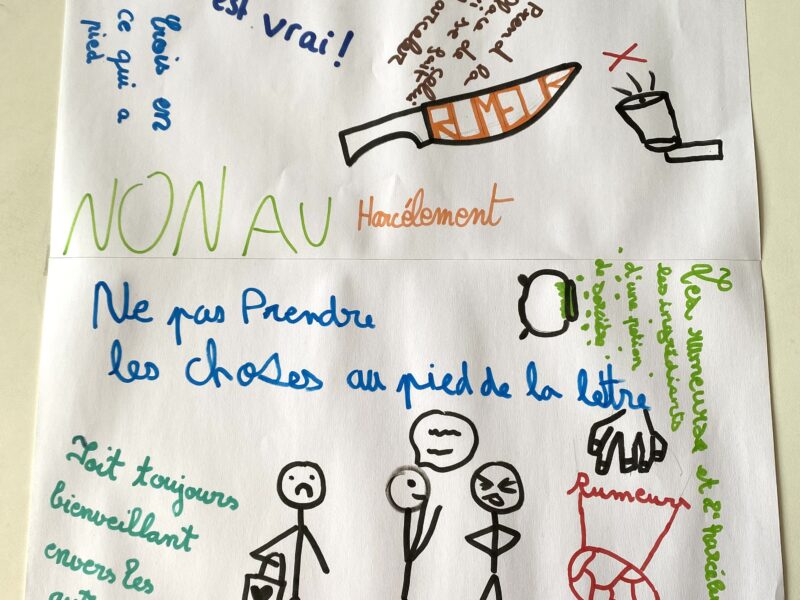 est vrai!
Crois en
ce qui a
pied
Prend la
place de
se fait
harceler
RUMEUR
NON AU Harcélement
Ne pas Prendre
les choses au pied de la lettre
Les rumeurs et l'harcèl
les ingrédients
d'une potion
de sorcière
Soit toujours
bienveillant
envers les
Rumeurs